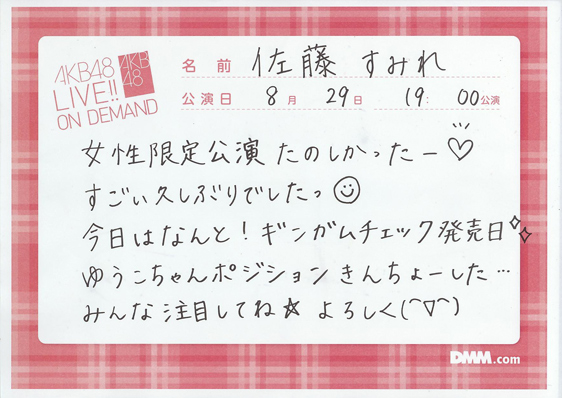 AKB48
LIVE!!
ON DEMAND
AKB
48
名前 佐藤 すみれ
公演日 8月 29日 19:00公演
女性限定公演 たのしかったー♡
すごい久しぶりでしたっ☺
今日はなんと！ギンガムチェック発売日
ゆうこちゃんポジションきんちょーした…
みんな注目してね☆ よろしく(^▽^)
DMM.com